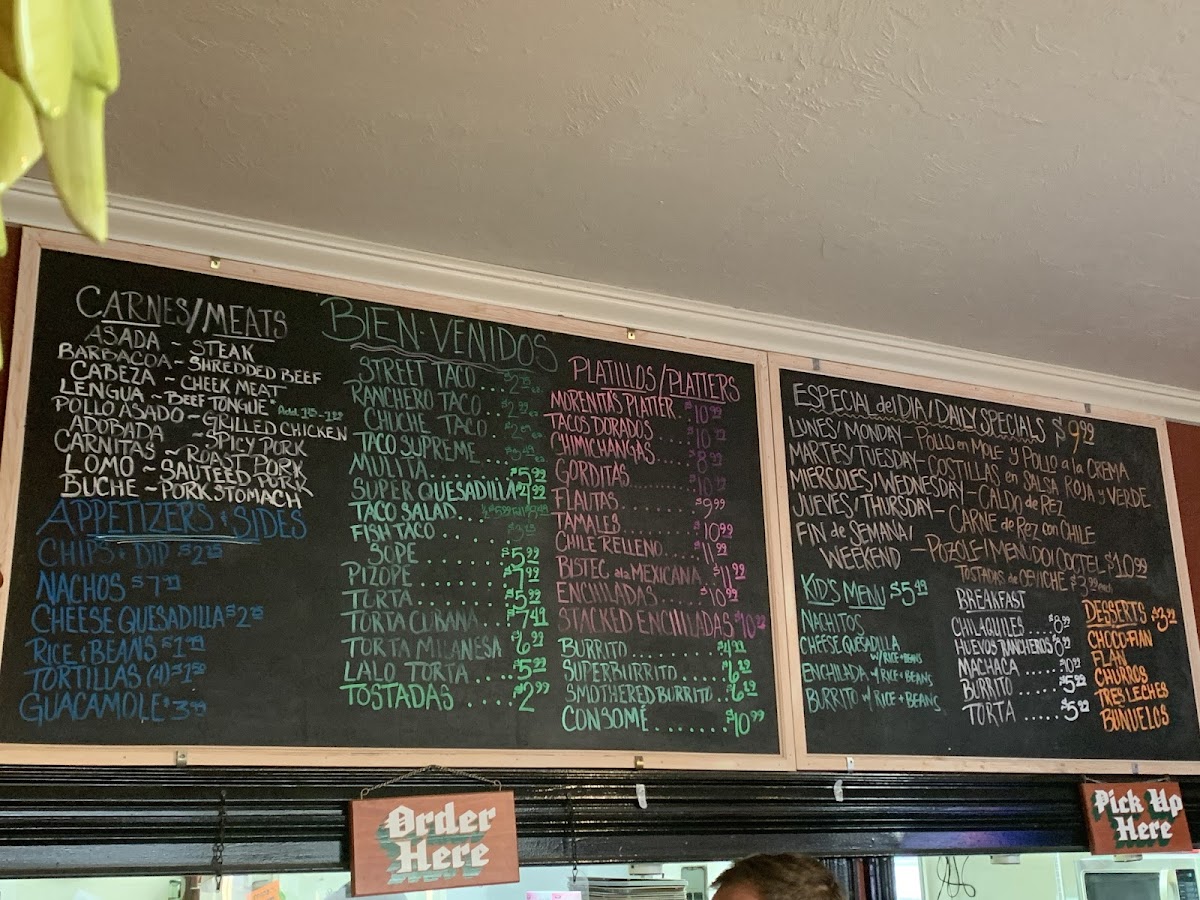 CARNES/MEATS
ASADA ~ STEAK
BARBACOA ~ SHREDDED BEEF
CABEZA ~ CHEEK MEAT
LENGUA ~ BEEF TONGUE Add
POLLO ASADO ~ GRILLED CHICKEN
ADOBADA ~ SPICY PORK
CARNITAS ~ ROAST PORK
LOMO ~ SAUTEED PORK
BUCHE ~ PORK STOMACH
APPETIZERS & SIDES
CHIPS & DIP
NACHOS
CHEESE QUESADILLA
RICE & BEANS $1.99
TORTILLAS (4) $1.50
GUACAMOLE $3.99
BIEN-VENIDOS
STREET TACO
RANCHERO TACO
CHUCHE TACO
TACO SUPREME
MULITA $5.99
SUPER QUESADILLA
TACO SALAD
FISH TACO
SOPE $5.99
PIZOPE $7.99
TORTA $5.99
TORTA CUBANA $7.49
TORTA MILANESA
LALO TORTA $5.99
TOSTADAS $2.99
PLATILLOS/PLATTERS
MORENITA'S PLATTER $10.99
TACOS DORADOS
CHIMICHANGAS $8.99
GORDITAS
FLAUTAS $9.99
TAMALES $10.99
CHILE RELLENO $11.99
BISTEC a la MEXICANA $11.99
ENCHILADAS $10.99
STACKED ENCHILADAS
BURRITO $4.99
SUPER BURRITO
SMOTHERED BURRITO
CONSOMÉ $10.99
ESPECIAL del DIA/DAILY SPECIALS $9.99
LUNES/MONDAY - POLLO en MOLE y POLLO a la CREMA
MARTES/TUESDAY - COSTILLAS en SALSA ROJA y VERDE
MIERCOLES/WEDNESDAY - CALDO de REZ
JUEVES/THURSDAY - CARNE de REZ con CHILE
FIN de SEMANA/
WEEKEND - POZOLE/MENUDO/COCTEL $10.99
TOSTADAS de CEVICHE
KID'S MENU $5.49
NACHITOS
CHEESE QUESADILLA
W/RICE & BEANS
ENCHILADA W/RICE & BEANS
BURRITO W/ RICE & BEANS
BREAKFAST
CHILAQUILES $8.99
HUEVOS RANCHEROS $8.99
MACHACA $10.99
BURRITO $5.99
TORTA $5.99
DESSERTS
CHOCO-FLAN
FLAN
CHURROS
TRES LECHES
BUÑUELOS
Order
Here
Pick Up
Here